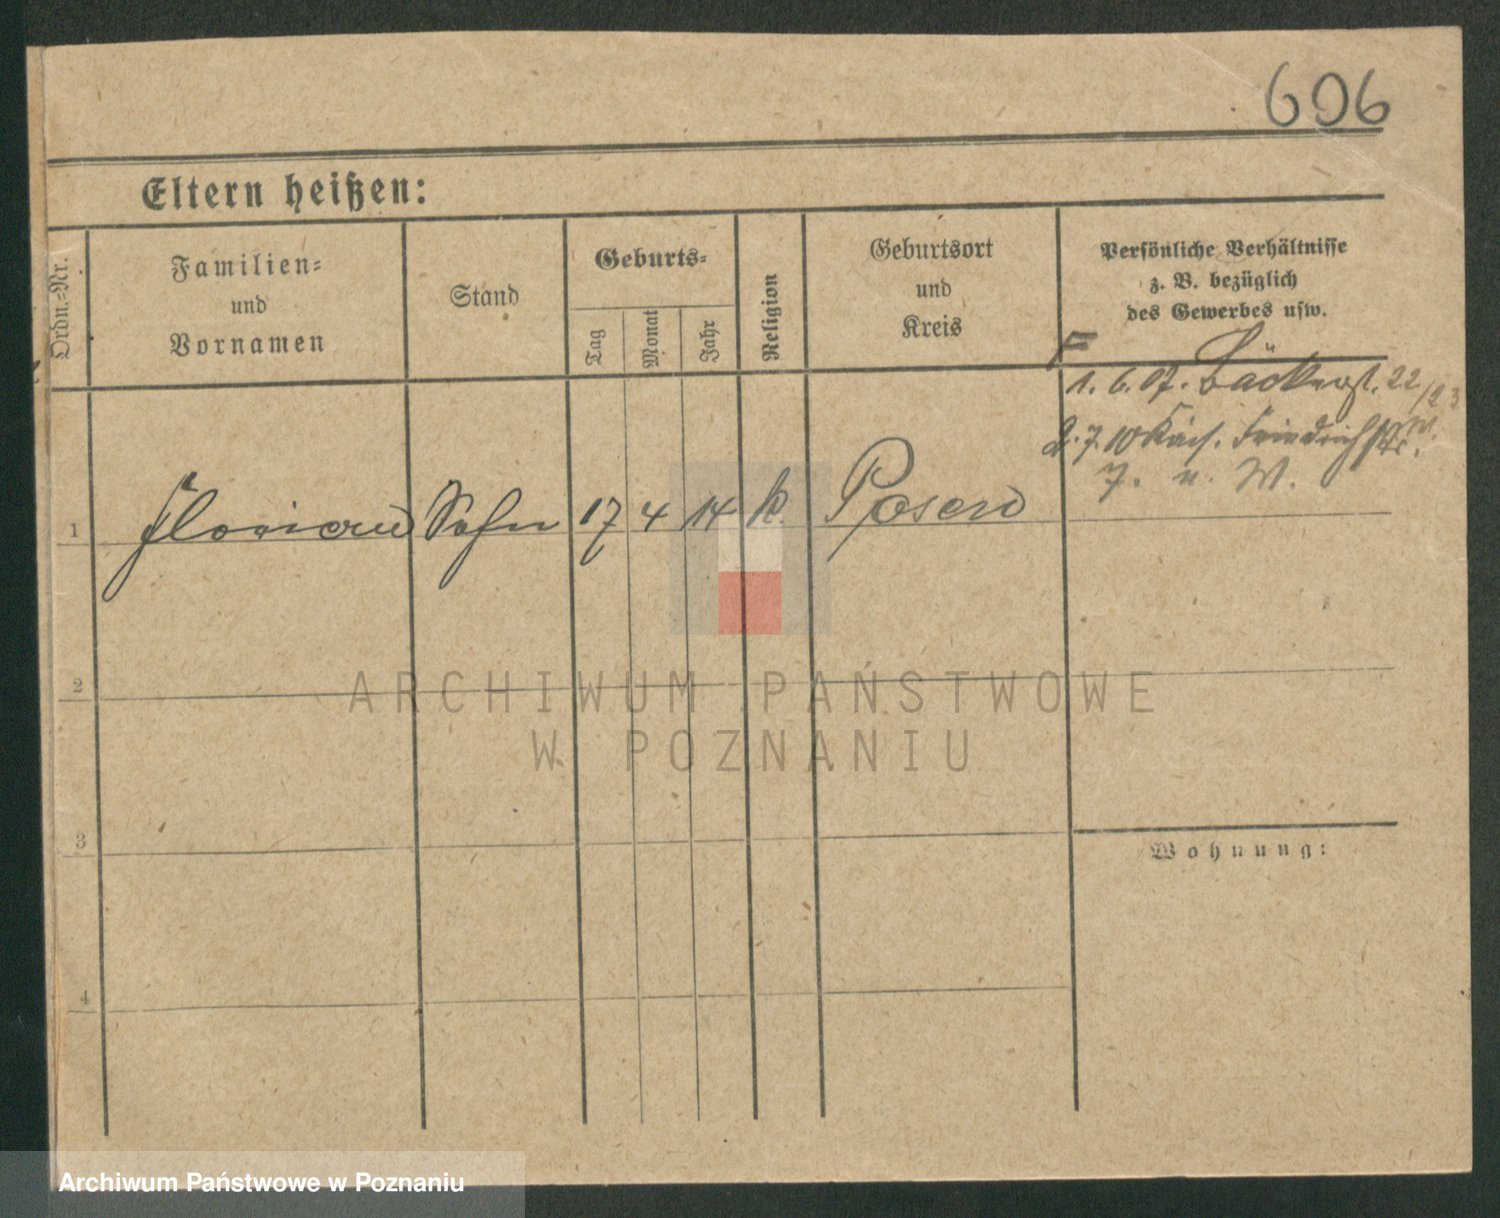 606
Eltern heißen:
Ordn.-Nr.
Familien-
und
Vornamen
Stand
Geburts-
Tag
Monat
Jahr
Religion
Geburtsort
und
Kreis
Persönliche Verhältnisse
z. B. bezüglich
des Gewerbes usw.
F
1. 6. 07. Bäckerst. 22/23
2. 7. 10 Friedrichstr.
7. u. W.
1 Florian Sohn 17 4 14 k. Posen
2
3
4
Wohnung:
ARCHIWUM PAŃSTWOWE
W POZNANIU
Archiwum Państwowe w Poznaniu